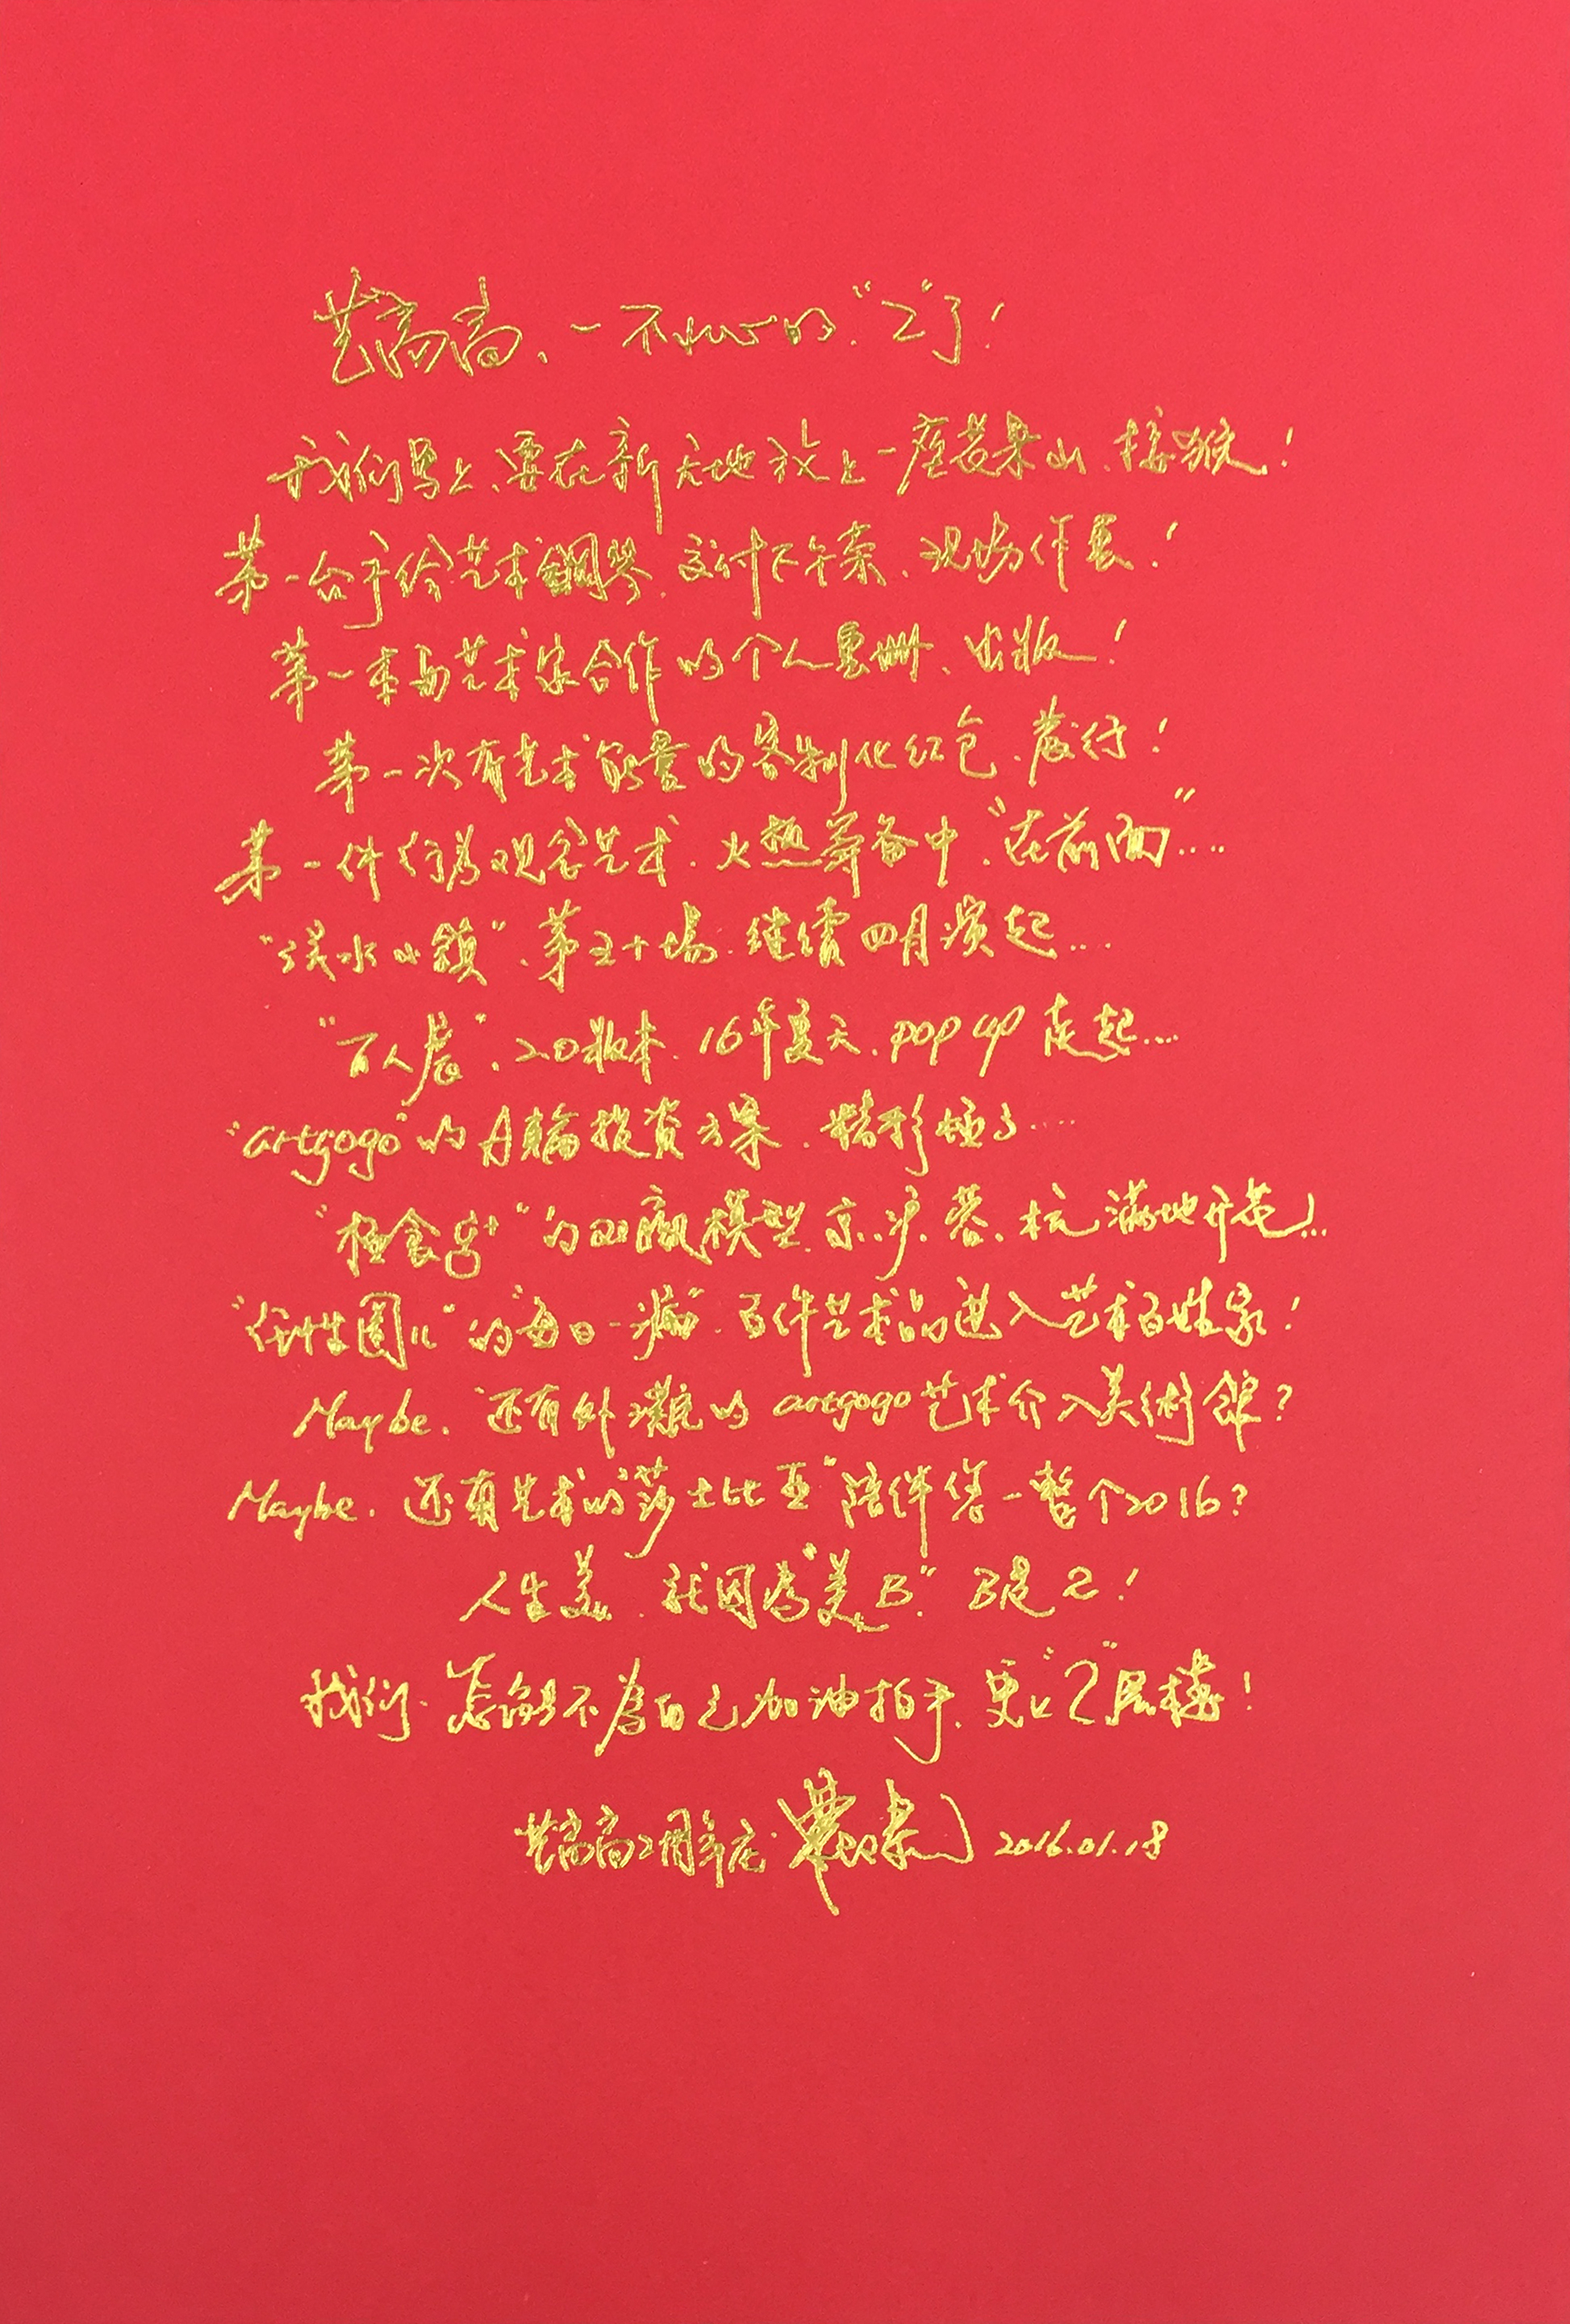 艺高高、一不小心的"2"了!
我们马上、要在新天地放上一座花果山、接猴!
第一台手绘艺术鋼琴、交付下午茶、现场作展!
第一本与艺术家合作的个人画册、出版!
第一次有艺术能量的客制化红包、发行!
第一件行为观念艺术、火热筹备中、"在前面"....
"浅水小鎮"、第五十場、继續四月演起...
"百人展"、2.0版本、16年夏天、pop up 走起...
"artgogo"的A輪投資方案、精彩极了....
"极食"的双赢模型、京、沪、蓉、杭满地开花!...
"任性圈儿"的"每日一病"、百件艺术品进入艺术百姓家!
Maybe、还有外灘的artgogo艺术介入美術館?
Maybe、还有艺术的"莎士比亚"陪伴您一整个2016?
人生美、就因为"美B"、B是2!
我们、怎能不为自己加油拍手、更上"2"层楼!
艺高高2周年庆 2016.01.18